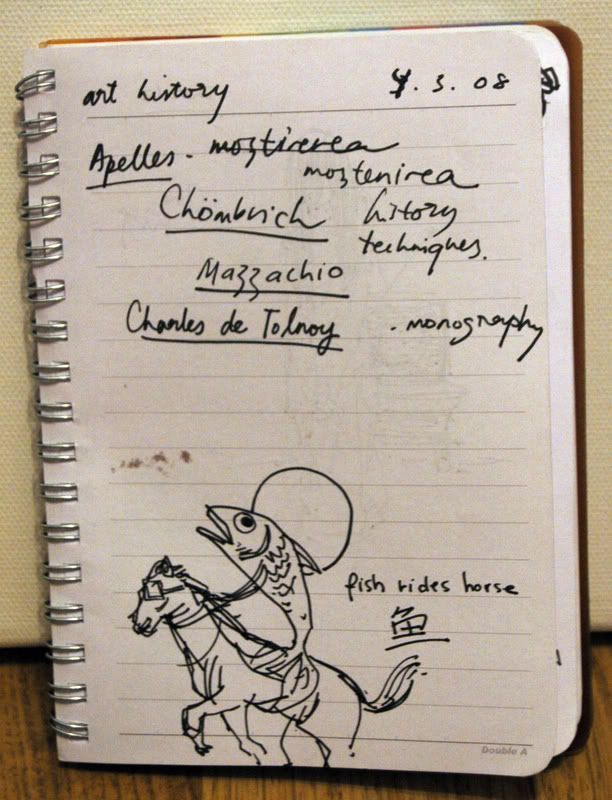 art history 4.3.08
Apelles - moştirerea
moştenirea
Chömbrich history
techniques.
Mazzachio
Charles de Tolnoy - monography
fish rides horse
鱼
Double A